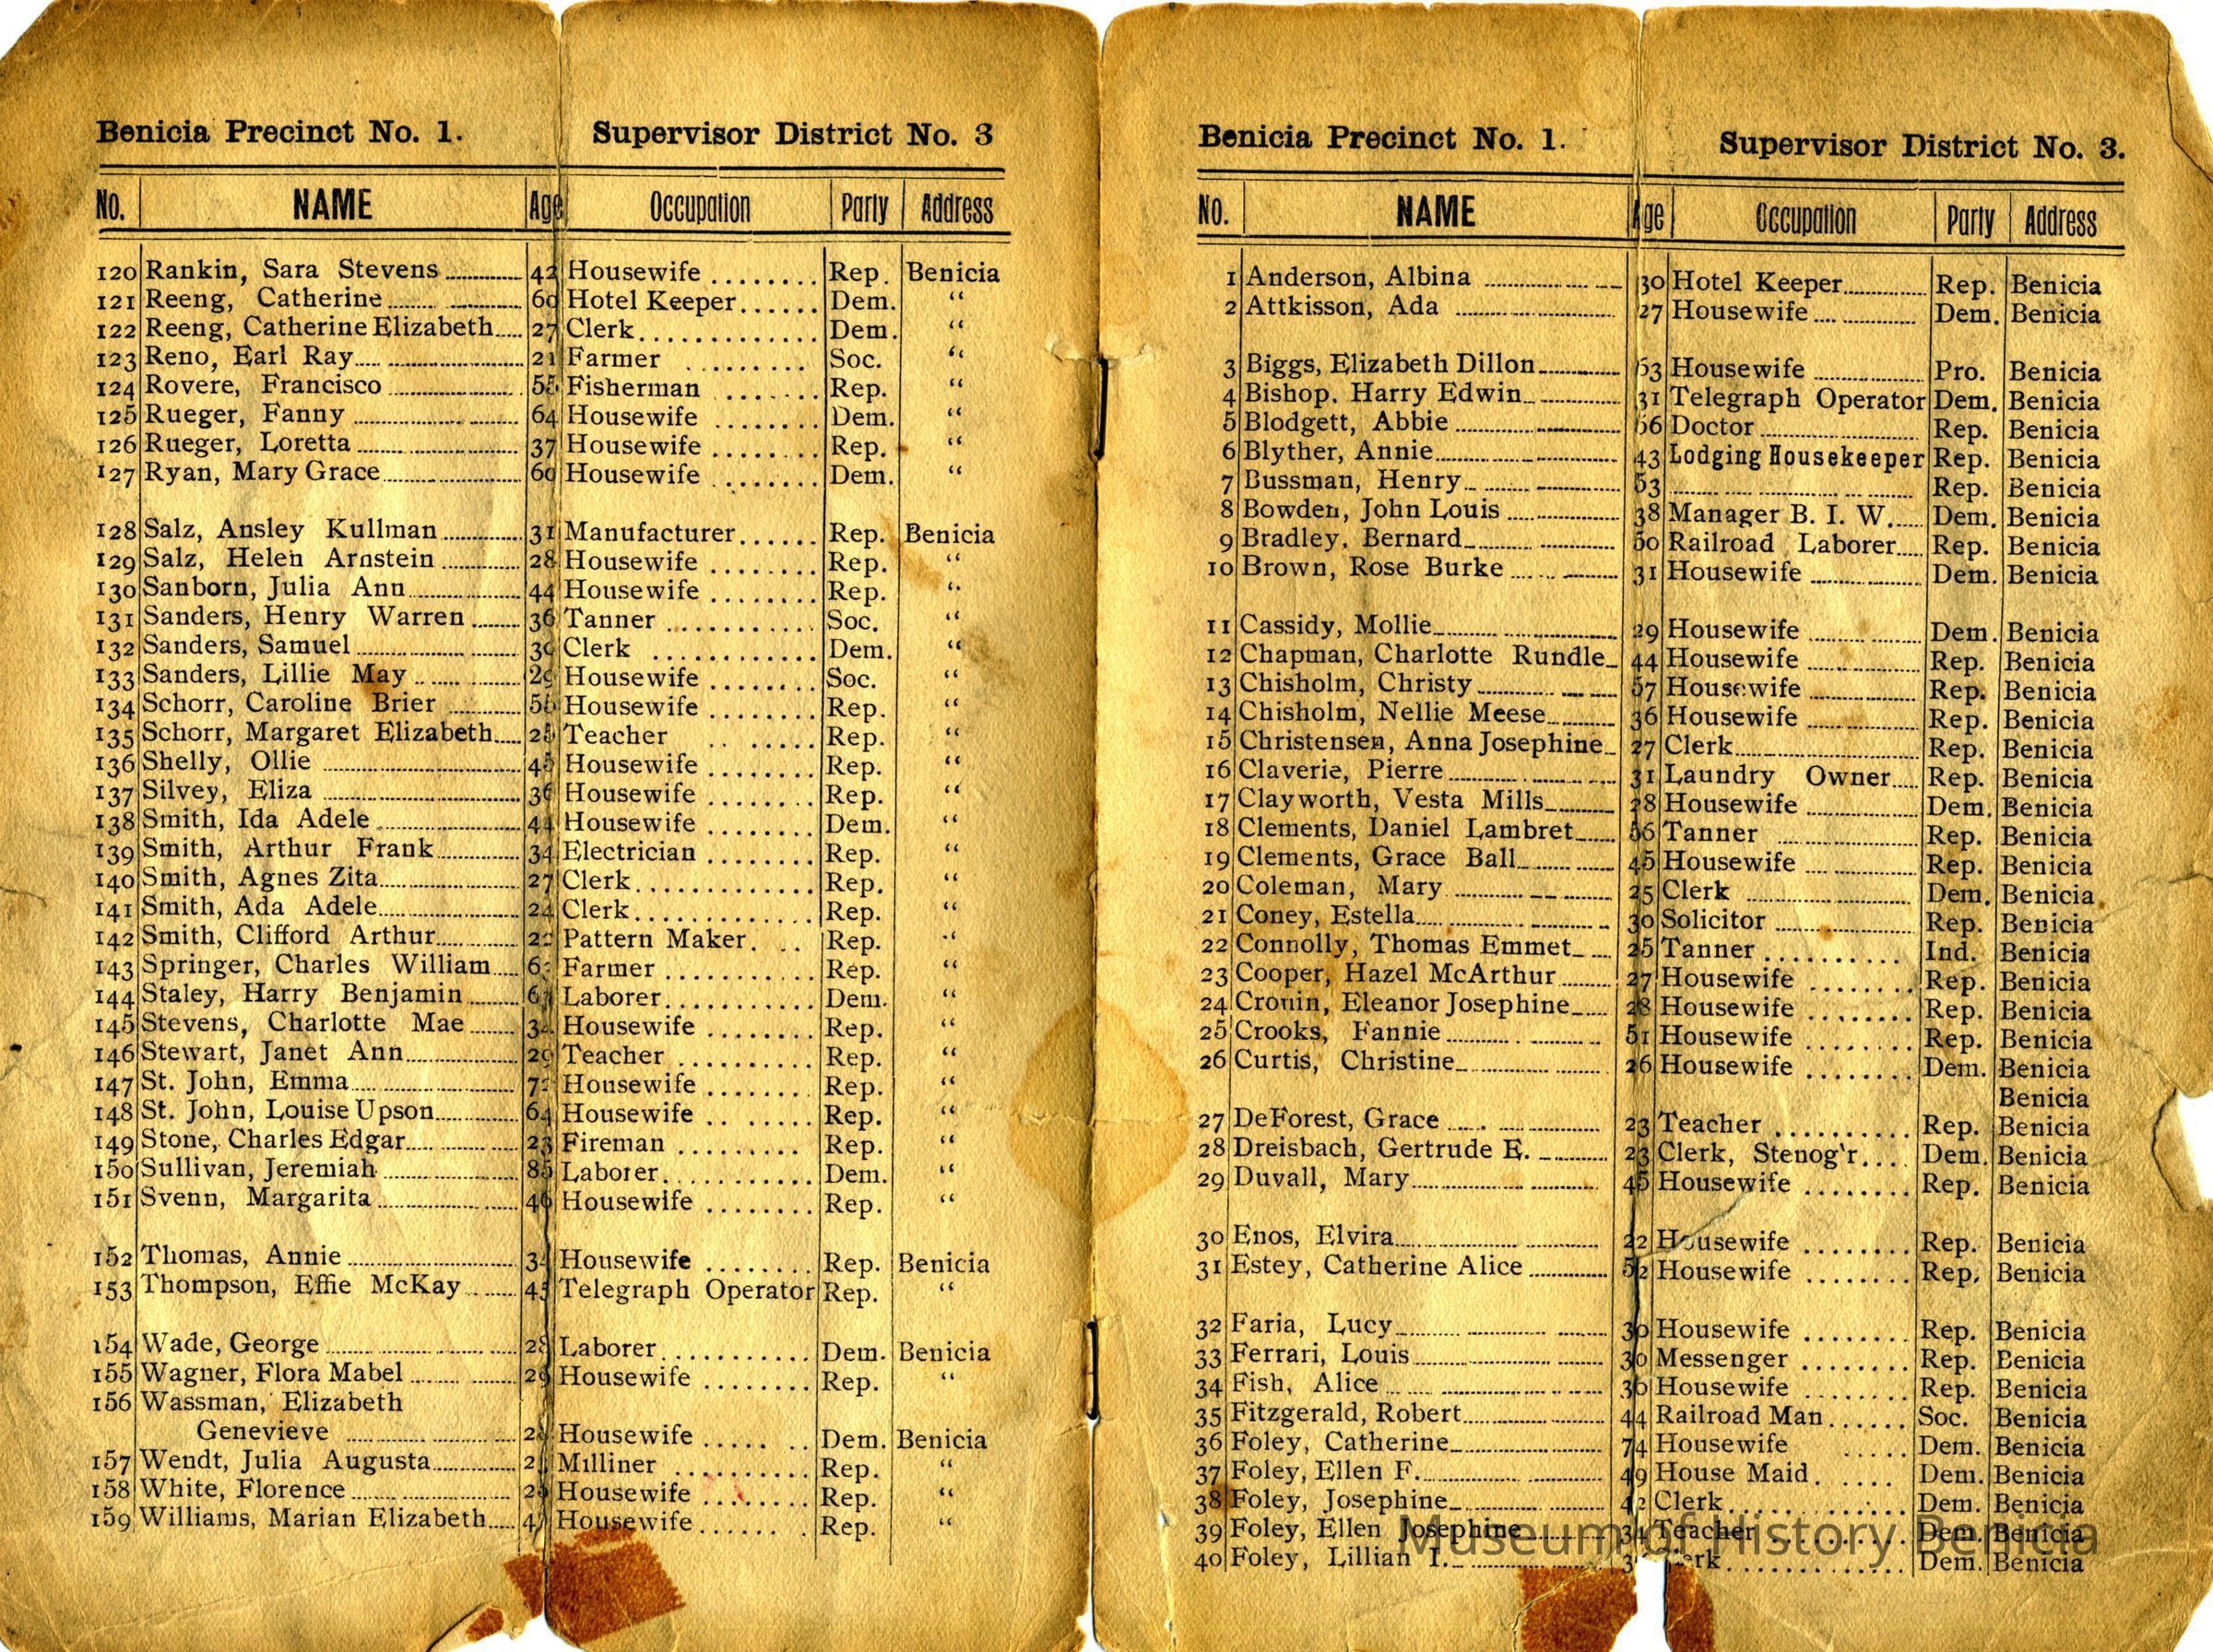 Benicia Precinct No. 1. Supervisor District No. 3
No. NAME Age Occupation Party Address
120 Rankin, Sara Stevens 42 Housewife Rep. Benicia
121 Reeng, Catherine Hotel Keeper Dem. “
122 Reeng, Catherine Elizabeth 27 Clerk Dem. “
123 Reno, Earl Ray 21 Farmer Soc. “
124 Rovere, Francisco Fisherman Rep. “
125 Rueger, Fanny 64 Housewife Dem. “
126 Rueger, Loretta 37 Housewife Rep. “
127 Ryan, Mary Grace Housewife Dem. “
128 Salz, Ansley Kullman 31 Manufacturer Rep. Benicia
129 Salz, Helen Arnstein 28 Housewife Rep. “
130 Sanborn, Julia Ann 44 Housewife Rep. “
131 Sanders, Henry Warren 36 Tanner Soc. “
132 Sanders, Samuel Clerk Dem. “
133 Sanders, Lillie May Housewife Soc. “
134 Schorr, Caroline Brier Housewife Rep. “
135 Schorr, Margaret Elizabeth Teacher Rep. “
136 Shelly, Ollie Housewife Rep. “
137 Silvey, Eliza Housewife Rep. “
138 Smith, Ida Adele 44 Housewife Dem. “
139 Smith, Arthur Frank 34 Electrician Rep. “
140 Smith, Agnes Zita 27 Clerk Rep. “
141 Smith, Ada Adele 24 Clerk Rep. “
142 Smith, Clifford Arthur Pattern Maker Rep. “
143 Springer, Charles William Farmer Rep. “
144 Staley, Harry Benjamin Laborer Dem. “
145 Stevens, Charlotte Mae Housewife Rep. “
146 Stewart, Janet Ann Teacher Rep. “
147 St. John, Emma Housewife Rep. “
148 St. John, Louise Upson 64 Housewife Rep. “
149 Stone, Charles Edgar 23 Fireman Rep. “
150 Sullivan, Jeremiah Laborer Dem. “
151 Svenn, Margarita Housewife Rep. “
152 Thomas, Annie Housewife Rep. Benicia
153 Thompson, Effie McKay Telegraph Operator Rep. “
154 Wade, George Laborer Dem. Benicia
155 Wagner, Flora Mabel Housewife Rep. “
156 Wassman, Elizabeth
Genevieve Housewife Dem. Benicia
157 Wendt, Julia Augusta Milliner Rep. “
158 White, Florence Housewife Rep. “
159 Williams, Marian Elizabeth Housewife Rep. “
Benicia Precinct No. 1. Supervisor District No. 3.
No. NAME Age Occupation Party Address
1 Anderson, Albina 30 Hotel Keeper Rep. Benicia
2 Attkisson, Ada 27 Housewife Dem. Benicia
3 Biggs, Elizabeth Dillon Housewife Pro. Benicia
4 Bishop. Harry Edwin 31 Telegraph Operator Dem. Benicia
5 Blodgett, Abbie Doctor Rep. Benicia
6 Blyther, Annie 43 Lodging Housekeeper Rep. Benicia
7 Bussman, Henry Rep. Benicia
8 Bowden, John Louis 38 Manager B. I. W. Dem. Benicia
9 Bradley, Bernard Railroad Laborer Rep. Benicia
10 Brown, Rose Burke 31 Housewife Dem. Benicia
11 Cassidy, Mollie 29 Housewife Dem. Benicia
12 Chapman, Charlotte Rundle 44 Housewife Rep. Benicia
13 Chisholm, Christy 57 Housewife Rep. Benicia
14 Chisholm, Nellie Meese 36 Housewife Rep. Benicia
15 Christensen, Anna Josephine 27 Clerk Rep. Benicia
16 Claverie, Pierre 31 Laundry Owner Rep. Benicia
17 Clayworth, Vesta Mills Housewife Dem. Benicia
18 Clements, Daniel Lambret Tanner Rep. Benicia
19 Clements, Grace Ball 45 Housewife Rep. Benicia
20 Coleman, Mary 25 Clerk Dem. Benicia
21 Coney, Estella 30 Solicitor Rep. Benicia
22 Connolly, Thomas Emmet 25 Tanner Ind. Benicia
23 Cooper, Hazel McArthur 27 Housewife Rep. Benicia
24 Cronin, Eleanor Josephine 28 Housewife Rep. Benicia
25 Crooks, Fannie 51 Housewife Rep. Benicia
26 Curtis, Christine 26 Housewife Dem. Benicia
Benicia
27 DeForest, Grace 23 Teacher Rep. Benicia
28 Dreisbach, Gertrude E. 23 Clerk, Stenog'r Dem. Benicia
29 Duvall, Mary 45 Housewife Rep. Benicia
30 Enos, Elvira 22 Housewife Rep. Benicia
31 Estey, Catherine Alice 52 Housewife Rep. Benicia
32 Faria, Lucy Housewife Rep. Benicia
33 Ferrari, Louis 30 Messenger Rep. Benicia
34 Fish, Alice Housewife Rep. Benicia
35 Fitzgerald, Robert 44 Railroad Man Soc. Benicia
36 Foley, Catherine 74 Housewife Dem. Benicia
37 Foley, Ellen F. 49 House Maid Dem. Benicia
38 Foley, Josephine 42 Clerk Dem. Benicia
39 Foley, Ellen Josephine 34 Teacher Dem. Benicia
40 Foley, Lillian I. Dem. Benicia
Museum of History Benicia